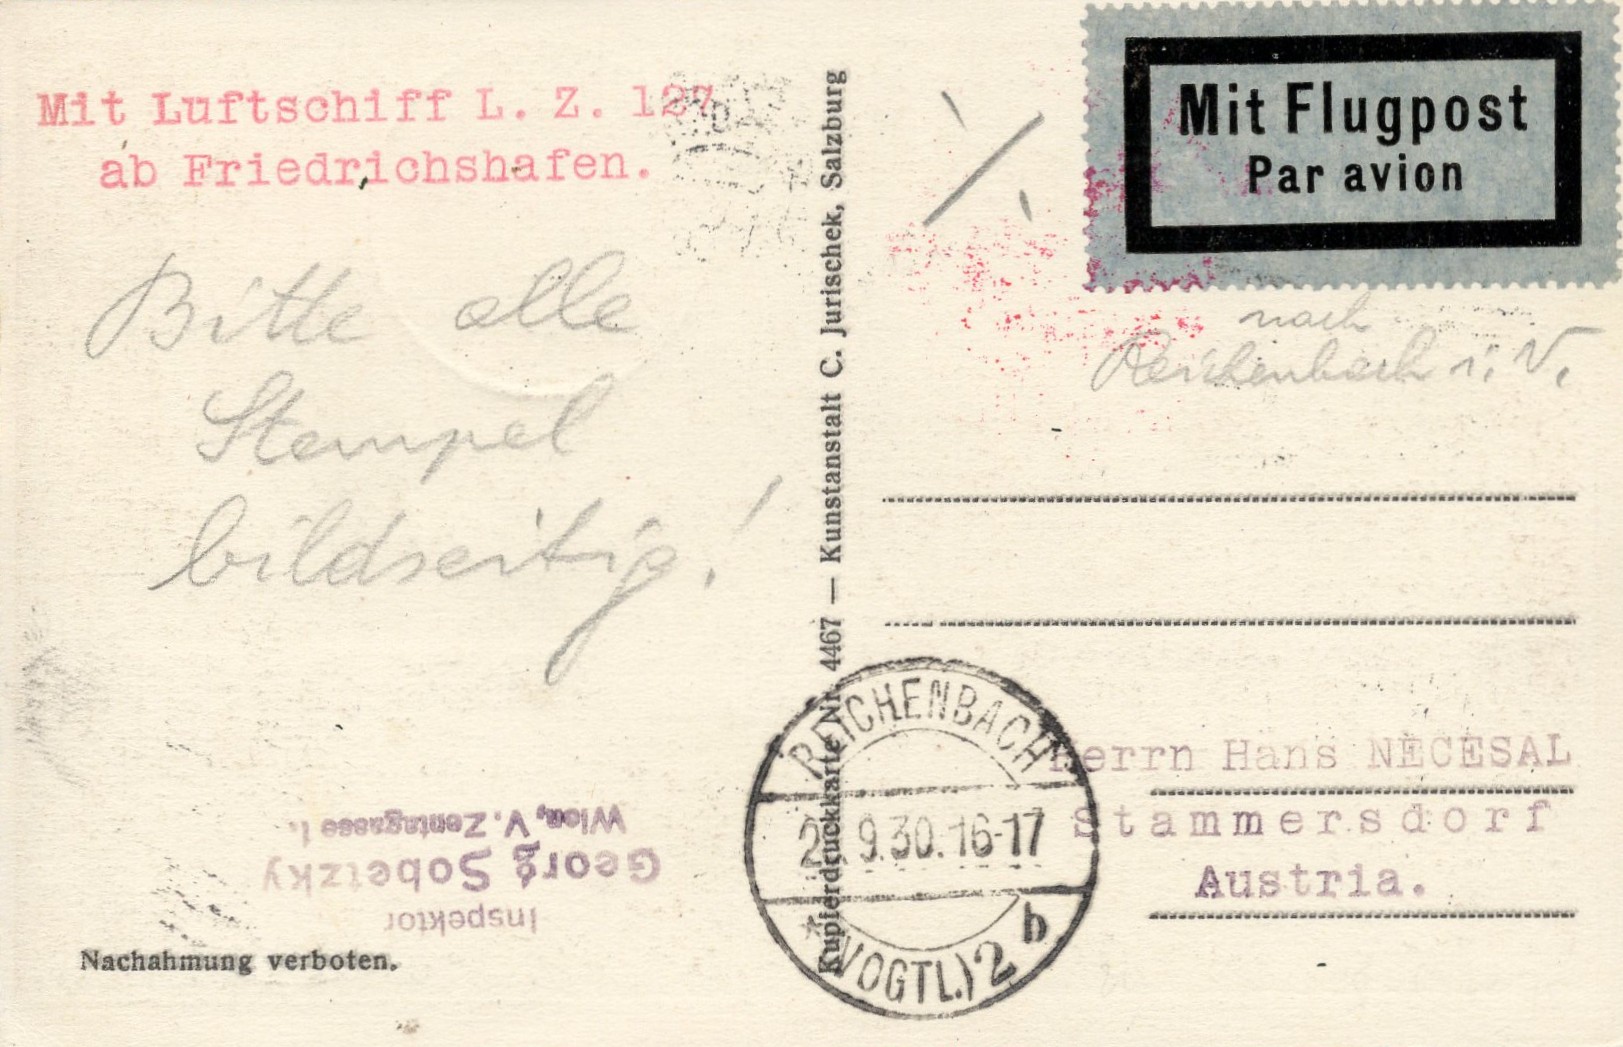 Mit Luftschiff L. Z. 127
ab Friedrichshafen.
Bitte alle
Stempel
bildseitig!
Inspektor
Georg Sobetzky
Wien, V. Zentagasse 1.
Nachahmung verboten.
Kupferdruckkarte Nr. 4467 — Kunstanstalt C. Jurischek, Salzburg
Mit Flugpost
Par avion
nach
Reichenbach i. V.
REICHENBACH
9.30.16-17
* (VOGTL.) 2 b
Herrn Hans NECESAL
Stammersdorf
Austria.